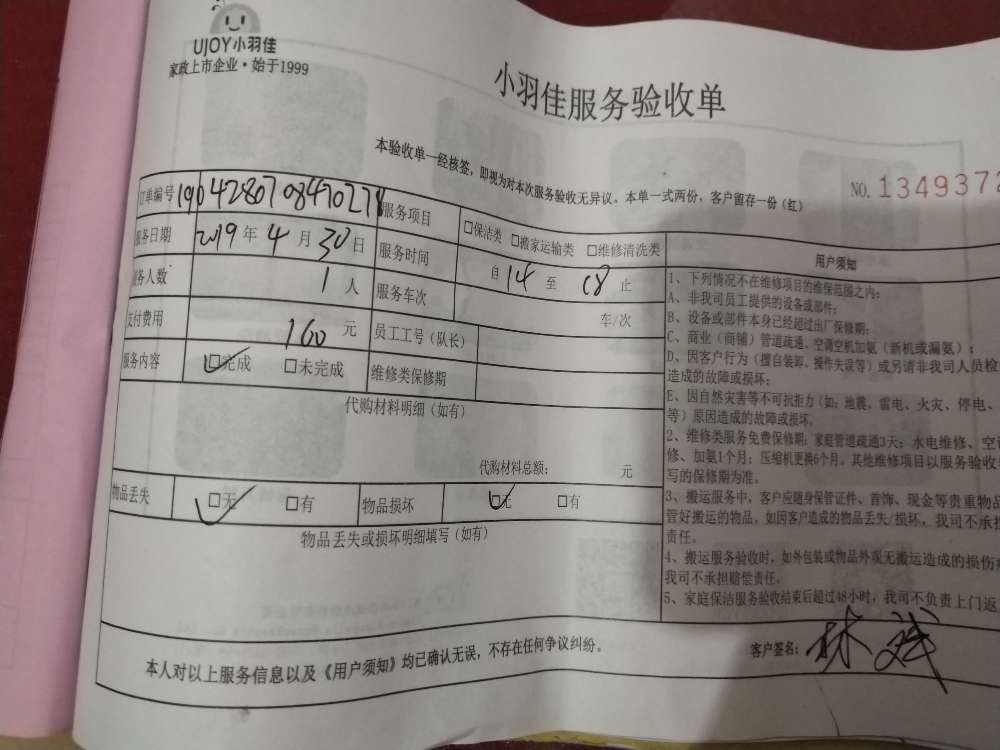 UJOY小羽佳
家政上市企业·始于1999
小羽佳服务验收单
本验收单一经核签，即视为对本次服务验收无异议。本单一式两份，客户留存一份（红）
NO. 1349372
订单编号 190428070847027 服务项目 □保洁类 □搬家运输类 □维修清洗类
服务日期 2019 年 4 月 30 日 服务时间 自 14 至 18 止
服务人数 1 人 服务车次 车/次
支付费用 160 元 员工工号（队长）
服务内容 ☑完成 □未完成 维修类保修期
代购材料明细（如有）
代购材料总额： 元
物品丢失 ☑无 □有 物品损坏 ☑无 □有
物品丢失或损坏明细填写（如有）
用户须知
1、下列情况不在维修项目的维保范围之内：
A、非我司员工提供的设备或部件；
B、设备或部件本身已经超过出厂保修期；
C、商业（商铺）管道疏通、空调空机加氨（新机或漏氨）；
D、因客户行为（擅自装卸、操作失误等）或另请非我司人员检
造成的故障或损坏；
E、因自然灾害等不可抗拒力（如：地震、雷电、火灾、停电、
等）原因造成的故障或损坏。
2、维修类服务免费保修期：家庭管道疏通3天；水电维修、空调
修、加氨1个月；压缩机更换6个月。其他维修项目以服务验收
写的保修期为准。
3、搬运服务中，客户应随身保管证件、首饰、现金等贵重物品
管好搬运的物品，如因客户造成的物品丢失/损坏，我司不承担
责任。
4、搬运服务验收时，如外包装或物品外观无搬运造成的损伤
我司不承担赔偿责任。
5、家庭保洁服务验收结束后超过48小时，我司不负责上门返
本人对以上服务信息以及《用户须知》均已确认无误，不存在任何争议纠纷。
客户签名： 林